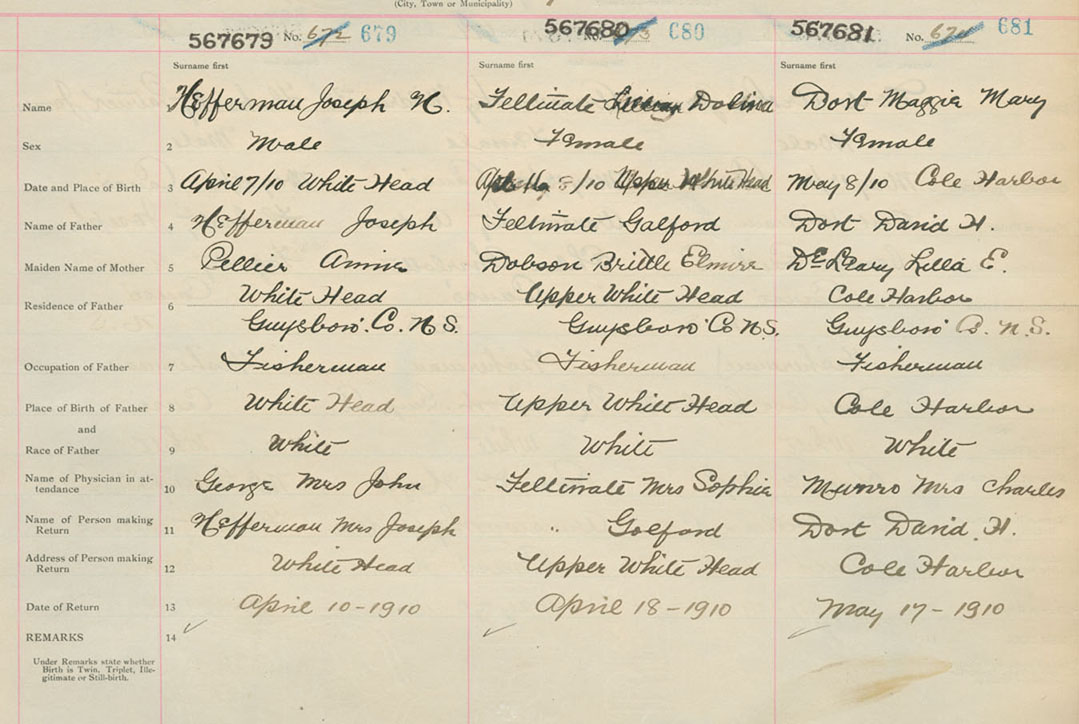 (City, Town or Municipality)
567679 No. 672 679 567680 No. 673 680 567681 No. 674 681
Surname first Surname first Surname first
Name 1 Hefferman Joseph H. Feltmate Dolina Dort Maggie Mary
Sex 2 Male Female Female
Date and Place of Birth 3 April 7/10 White Head 8/10 Upper White Head May 8/10 Cole Harbor
Name of Father 4 Hefferman Joseph Feltmate Galford Dort David H.
Maiden Name of Mother 5 Pellier Annie Dobson Brittle Elmire DeLeary Lilla E.
Residence of Father 6 White Head Upper White Head Cole Harbor
Guysboro' Co. N S. Guysboro' Co N.S. Guysboro' Co. N.S.
Occupation of Father 7 Fisherman Fisherman Fisherman
Place of Birth of Father 8 White Head Upper White Head Cole Harbor
and
Race of Father 9 White White White
Name of Physician in at-
tendance 10 George Mrs John Feltmate Mrs Sophia Munro Mrs Charles
Name of Person making
Return 11 Hefferman Mrs Joseph " Golford Dort David. H.
Address of Person making
Return 12 White Head Upper White Head Cole Harbor
Date of Return 13 April 10-1910 April 18-1910 May 17-1910
REMARKS 14
Under Remarks state whether
Birth is Twin, Triplet, Ille-
gitimate or Still-birth.